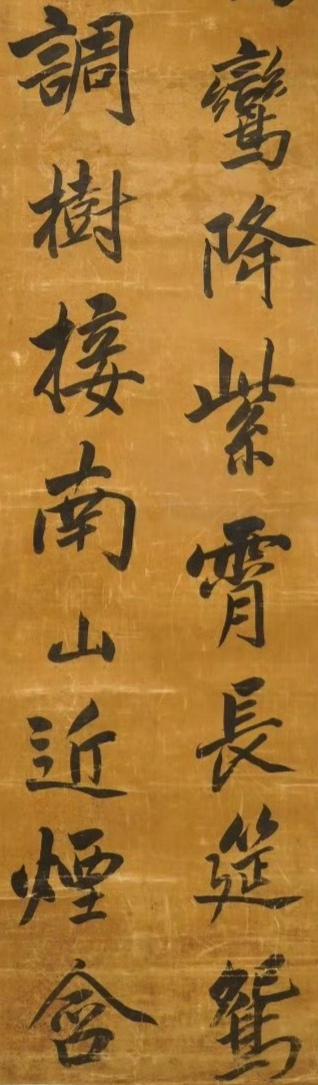 鸞降紫霄長筵鴛
調樹接南山近煙含